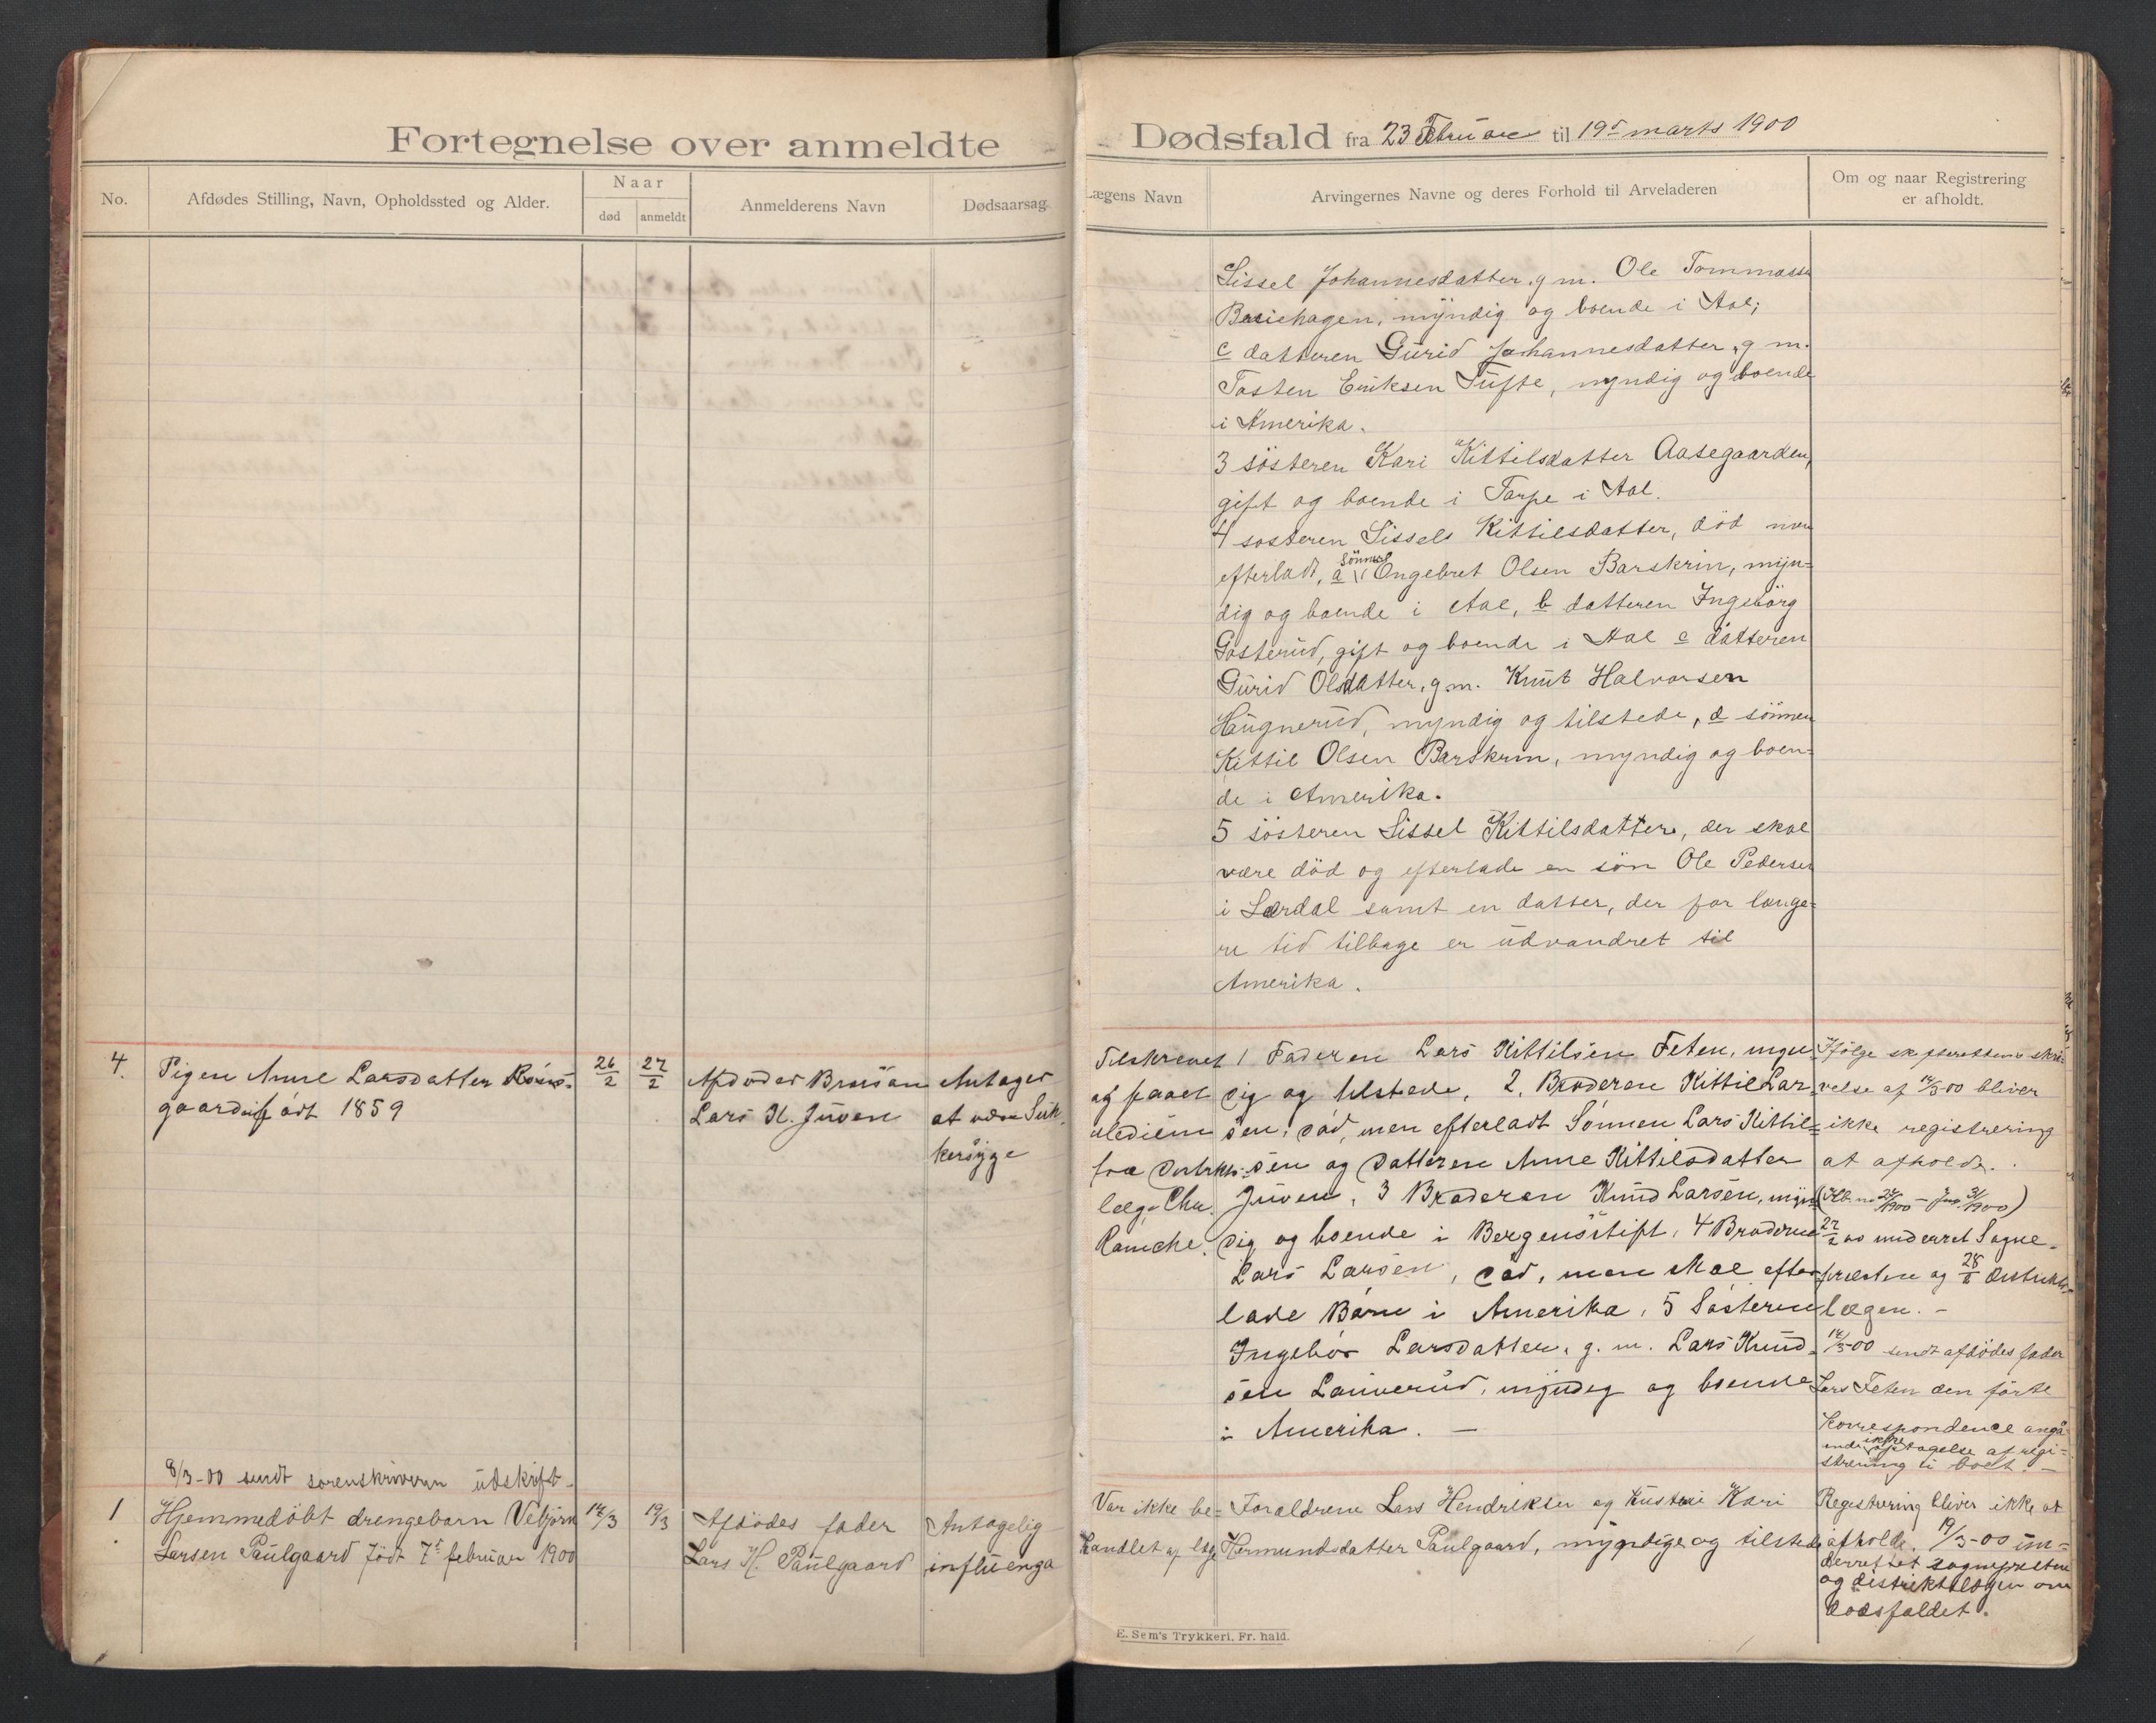 Fortegnelse over anmeldte
No.
Afdødes Stilling, Navn, Opholdssted og Alder.
Naar
død
anmeldt
Anmelderens Navn
Dødsaarsag
4.
Pigen Anne Larsdatter
gaarden født 1859
26/2
27/2
Afdødes
Lars K. Juven
Antages
at være Suk
kersyge
8/3-00 sendt sorenskriveren udskrift
1
Hjemmedöbt drengebarn Vebjörn
Larsen Paulgaard födt 7de februar 1900
19/3
Afdödes fader
Lars H. Paulgaard
Antagelig
influenza
Dødsfald fra 23 Februar til 19de marts 1900
Lægens Navn
Arvingernes Navne og deres Forhold til Arveladeren
Om og naar Registrering
er afholdt.
Sissel Johannesdatter, g m. Ole Tommassen
myndig og boende i Aal;
c datteren Gurid Johannesdatter, g m.
Tosten Eriksen Tufte, myndig og boende
i Amerika.
3 sösteren Kari Kittilsdatter Aasegaarden,
gift og boende i Torpe i Aal.
4 sösteren Sissels Kittilsdatter, död men
efterladt, a Sönnen Engebret Olsen Barskrin, myn=
dig og boende i Aal, b datteren Ingebörg
gift og boende i Aal c datteren
Gurid Olsdatter, g.m. Knut Halvorsen
Haugnerud, myndig og tilstede, d sönnen
Kittil Olsen Barskrin, myndig og boen=
de i Amerika.
5 sösteren Sissel Kittilsdatter, der skal
være död og efterlade en sön Ole Pedersen
i Lærdal samt en datter, der for længe=
re tid tilbage er udvandret til
Amerika.
Tilskrevet
og faaet
fra distrikts-
læge Chr.
1 Faderen Lars Kittilsen Feten, myn
dig og tilstede, 2. Broderen Kittil Lar
sen, død, men efterladt Sønnen Lars Kittil=
sen og Datteren Anne Kittilsdatter
Juven, 3 Broderen Knud Larsen, myn
dig og boende i Bergensstift, 4 Broderen
Lars Larsen, død, men skal efter
lade Børn i Amerika, 5 Søsteren
Ingebør Larsdatter, g. m. Lars Knud=
sen myndig og boende
i Amerika. —
Ifölge skifterettens skri=
velse af 14/3 00 bliver
ikke registrering
at afholde.
27/2 00 underret Sogne-
præsten og 28/2 distrikts
lægen. -
sendt afdödes fader
Lars Feten den förte
Korrespondence angå
ende ikke optagelse af regi=
strering i boet. —
Var ikke be=
handlet af læge
Foraldrene Lars Hendriksen og hustru Kari
Hermundsdatter Paulgaard, myndige og tilstede
Registrering bliver ikke at
afholde. 19/3-00 un=
derrettet sognepresten
og distriktslægen om
dødsfaldet.
E. Sem's Trykkeri, Fr. hald.